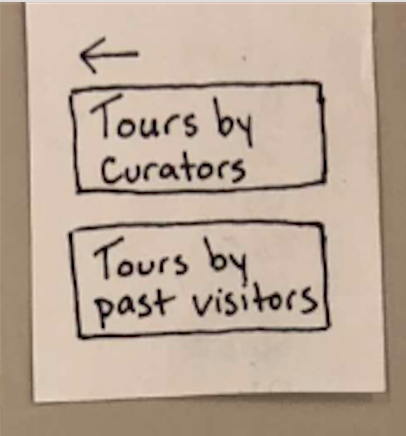 ←
Tours by
Curators
Tours by
past visitors